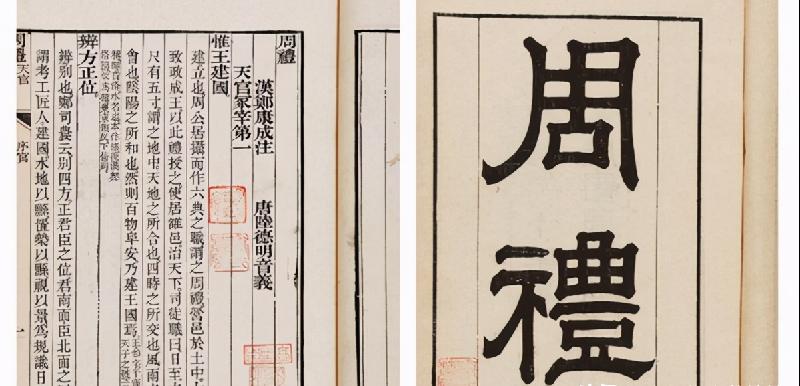 周禮
漢鄭康成注 唐陸德明音義
天官冢宰第一
惟王建國
建立也周公居攝而作六典之職謂之周禮營邑於土中
致政成王以此禮授之使居雒邑治天下司徒職曰日至
尺有五寸謂之地中天地之所合也四時之所交也風雨
會也陰陽之所和也然則百物阜安乃建王國焉
辨方正位
辨別也鄭司農云别四方正君臣之位君南面臣北面之
謂考工匠人建國水地以縣置槷以縣視以景爲規識日
周禮 天官 序官 一
周禮